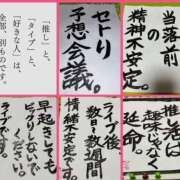 「推し」と、
「タイプ」と、
「好きな人」は、
全部、別ものです。
セトリ
予想会議。
当落前の
精神不安定。
早起きしても
ビックリしないで
ください。
ライブです。
ライブ後、
数日〜数週間
情緒不安定。
推活は
趣味じゃなく
延命。